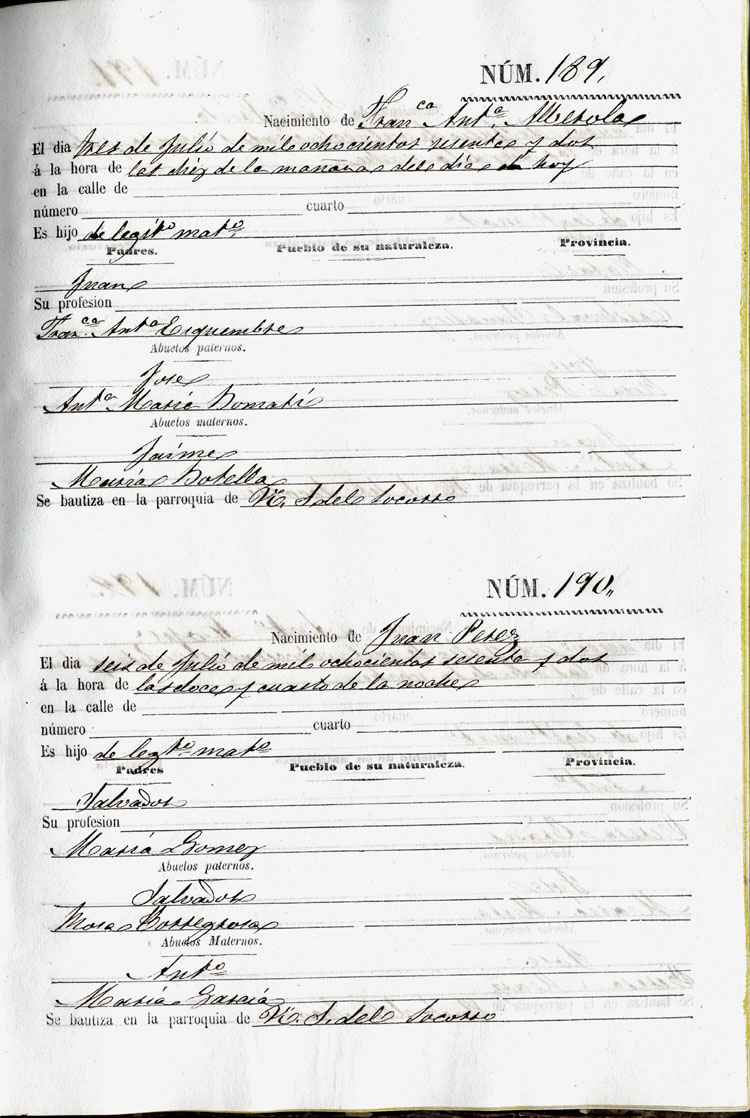 NÚM. 189.
Nacimiento de Fran.ca Ant.a Alberola
El dia tres de Julio de mil ochocientos sesenta y dos
á la hora de las diez de la mañana del dia de hoy
en la calle de
número cuarto
Es hijo de legit.o mat.o
Padres. Pueblo de su naturaleza. Provincia.
Juan
Su profesion
Fran.ca Ant.a Esquembre
Abuelos paternos.
Jose
Ant.a Maria
Abuelos maternos.
Jaime
Maria Botella
Se bautiza en la parroquia de N. S. del Socorro
NÚM. 190.
Nacimiento de Juan Perez
El dia seis de Julio de mil ochocientos sesenta y dos
á la hora de las doce y cuarto de la noche
en la calle de
número cuarto
Es hijo de legt.o mat.o
Padres Pueblo de su naturaleza. Provincia.
Salvador
Su profesion
Maria Gomez
Abuelos paternos.
Salvador
Rosa Berregrosa
Abuelos Maternos.
Ant.o
Maria Garcia
Se bautiza en la parroquia de N. S. del Socorro